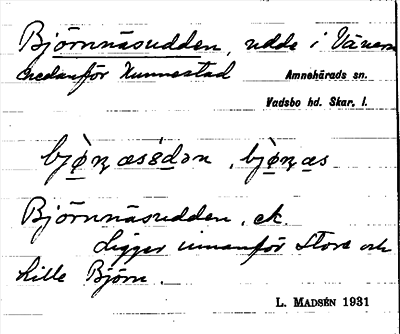 Björnnäsudden, udde i Vänern
nedanför Hunnestad Amnehärads sn.
Vadsbo hd. Skar. l.
bjø̀ɳæsɵ̀dən, bjø̀ɳæs
Björnnäsudden, ek.
Ligger innanför Store och
Lille Björn.
L. MADSÉN 1931